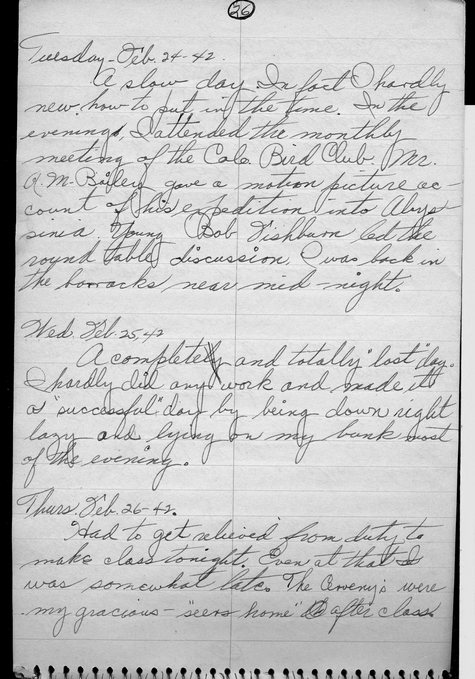 26
Tuesday-Feb. 24-42.
A slow day. In fact I hardly
new how to put in the time. In the
evening, I attended the monthly
meeting of the Colo. Bird Club. Mr.
A. M. Bailey gave a motion picture ac-
count of his expedition into Abys-
sinia. Young Bob Fishburn led the
round table discussion. I was back in
the barracks near mid-night.
Wed. Feb. 25, 42
A completely and totally "lost" day.
I hardly did any work and made it
a "successful" day by being down right
lazy and lying on my bunk most
of the evening.
Thurs. Feb. 26-42.
Had to get relieved from duty to
make class tonight. Even at that I
was somewhat late. The Cerveny's were
my gracious - "seers home" after class.